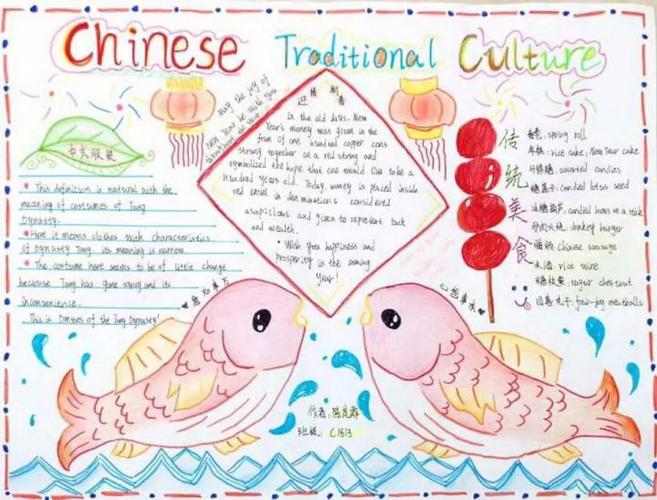 Chinese Traditional Culture
May the joy of
New Year be with you
throughout the year
中式服装
* This definition is natural with the
meaning of costumes of Tang
Dynasty.
* Here it means clothes with characteristics
of Dynasty Tang, its meaning is narrow.
* The costume here seems to be of little change
because Tang has gone around its
inconvenience.
This is Dresses of the Tang Dynasty!
迎接 新春
In the old days, New
Year's money was given in the
form of one hundred copper coins
strung together on a red string and
symbolized the hope that one would live to be a
hundred years old. Today, money is placed inside
red envel in denominations considered
auspicious and given to represent luck
and wealth.
• Wish you happiness and
prosperity in the coming
year!
传统美食
春卷: spring roll
年糕: rice cake; New Year cake
什锦糖: assorted candies
糖莲子: candied lotus seed
冰糖葫芦: candied haws on a stick
驴肉火烧: donkey burger
腊肠: Chinese sausage
米酒: rice wine
糖板栗: sugar chestnut
四喜丸子: four-joy meatballs
心想事成
作者:
班级: C1613